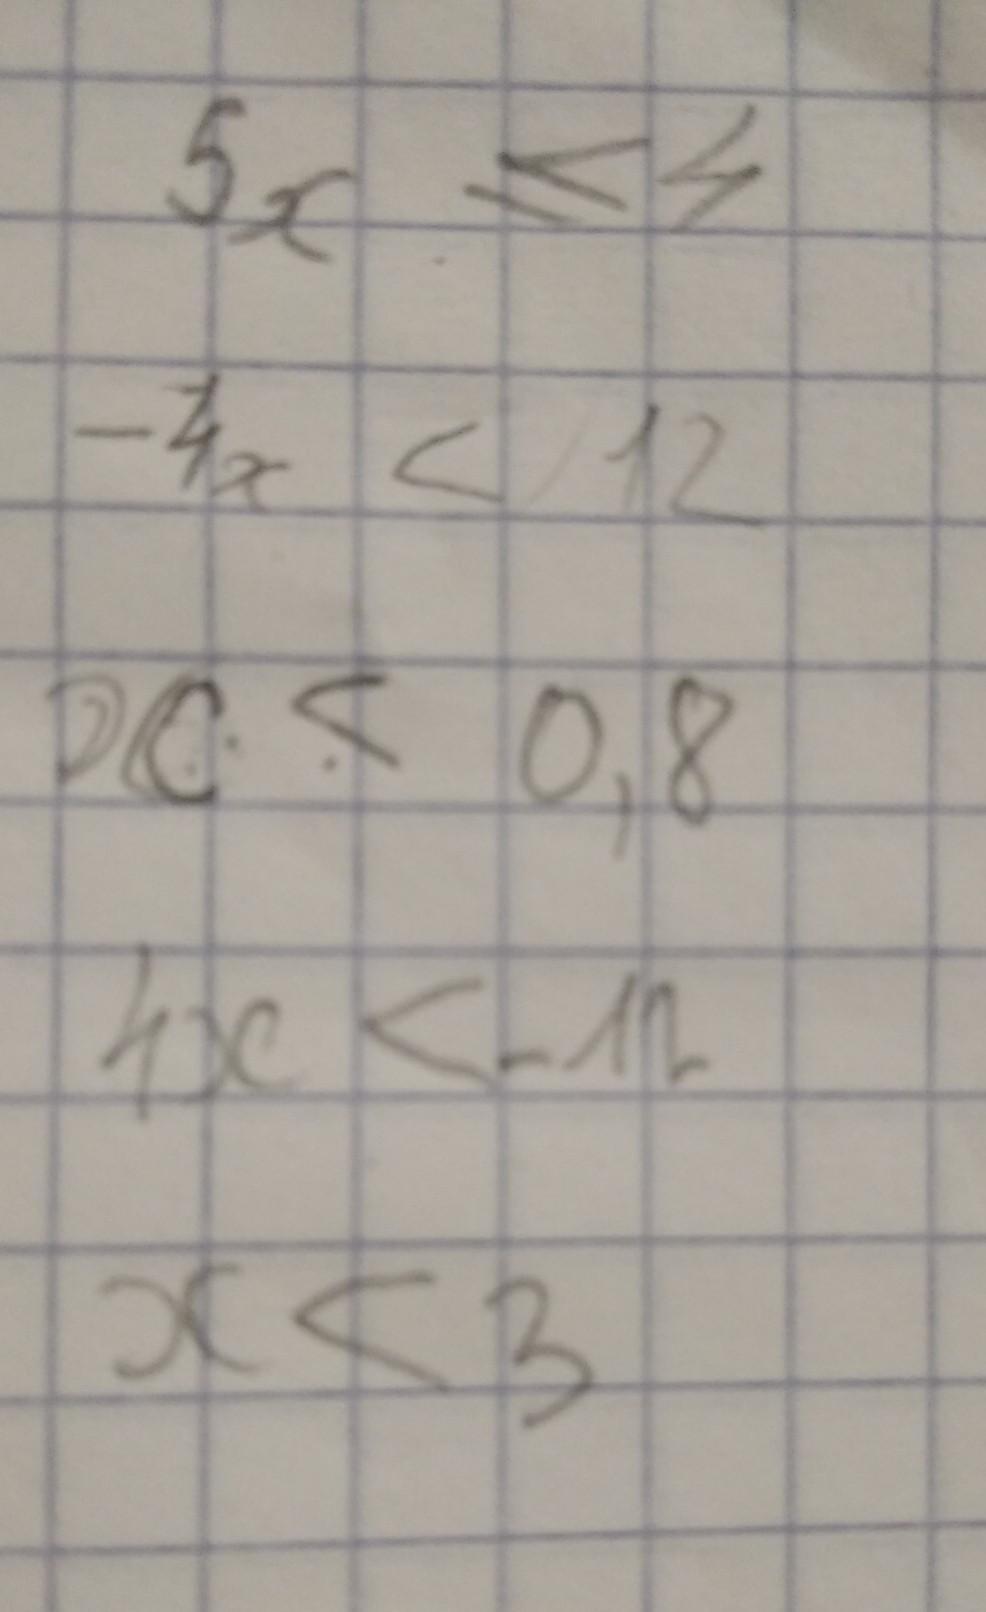 5x ≤ 4
-4x < 12
x < 0,8
4x < -12
x < 3